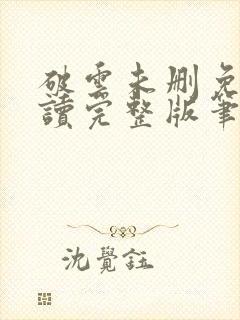 破雲未刪免
讀完整版筆
沈覺鈺